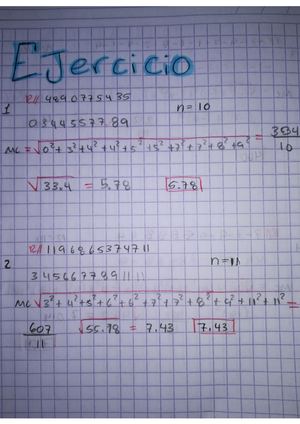 Ejercicio
1 R// 4890775435 n = 10
03445577 89
MC = √0²+3²+4²+4²+5²+5²+7²+7²+8²+9² = 334/10
√33.4 = 5.78 5.78
2 R// 1196865374711 n=11
345667789 11 11
MC √3²+4²+5²+6²+6²+7²+7²+8²+9²+11²+11² =
607/11 √55.18 = 7.43 7.43